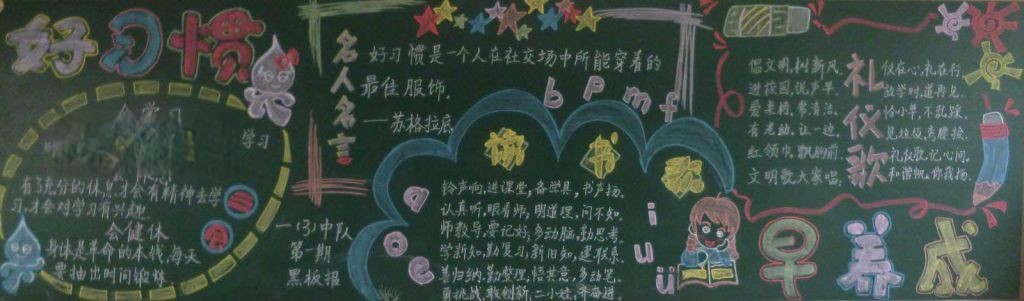 好习惯
会学习
学习
有充分的休息才会有精神去学
习,才会对学习有兴趣
会健体
身体是革命的本钱,每天
要抽出时间锻炼
名人名言
好习惯是一个人在社交场中所能穿着的
最佳服饰。
——苏格拉底
一(3)中队
第一期
黑板报
b p m f
a o e
i u ü
书歌
铃声响,进课堂,备学具,书声扬。
认真听,眼看师,明道理,问不知。
师教导,要记好,多动脑,勤思考。
学新知,勤复习,新旧知,建联系。
善归纳,勤整理,悟其意,多动笔。
勇挑战,敢创新,二小娃,齐奋进。
礼仪歌
倡文明,树新风,仪在心,礼在行
进校园,说声早,放学时,道再见。
爱校园,常清洁,恰小草,不乱踩。
有走动,让一边,见垃圾,弯腰捡。
红领巾,飘胸前,礼仪歌,记心间。
文明歌,大家唱,和谐帆,你我扬。
早养成